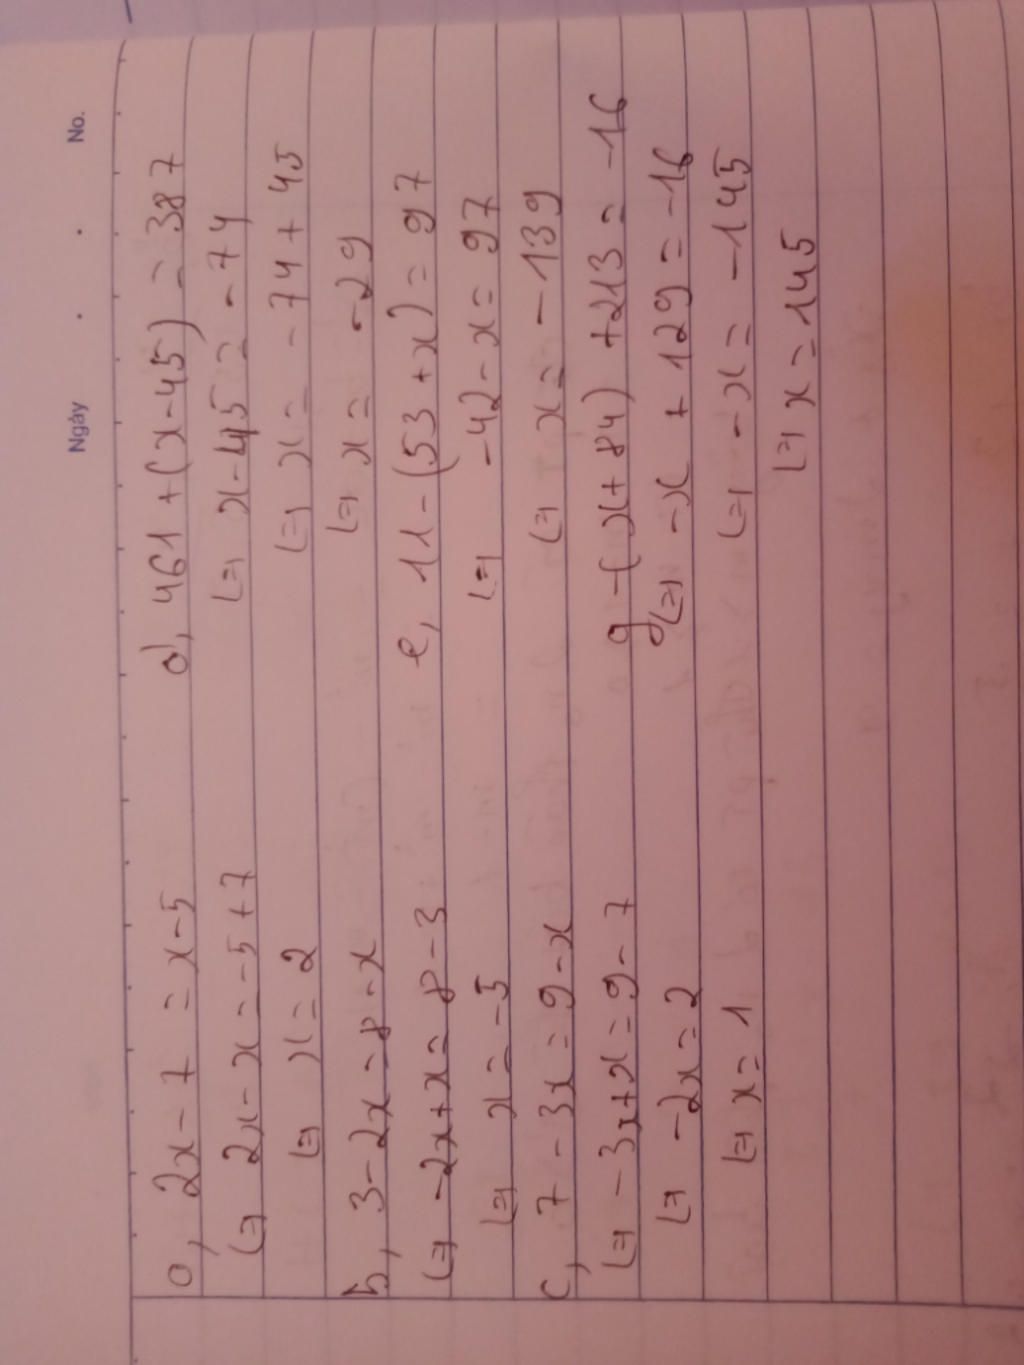 Ngày . . No.
a, 2x - 7 = x - 5
<=> 2x - x = -5 + 7
<=> x = 2
b, 3 - 2x = 8 - x
<=> -2x + x = 8 - 3
<=> x = -5
c, 7 - 3x = 9 - x
<=> -3x + x = 9 - 7
<=> -2x = 2
<=> x = 1
d, 461 + (x - 45) = 387
<=> x - 45 = -74
<=> x = -74 + 45
<=> x = -29
e, 11 - (53 + x) = 97
<=> -42 - x = 97
<=> x = -139
g -(x + 84) + 213 = -16
<=> -x + 129 = -16
<=> -x = -145
<=> x = 145